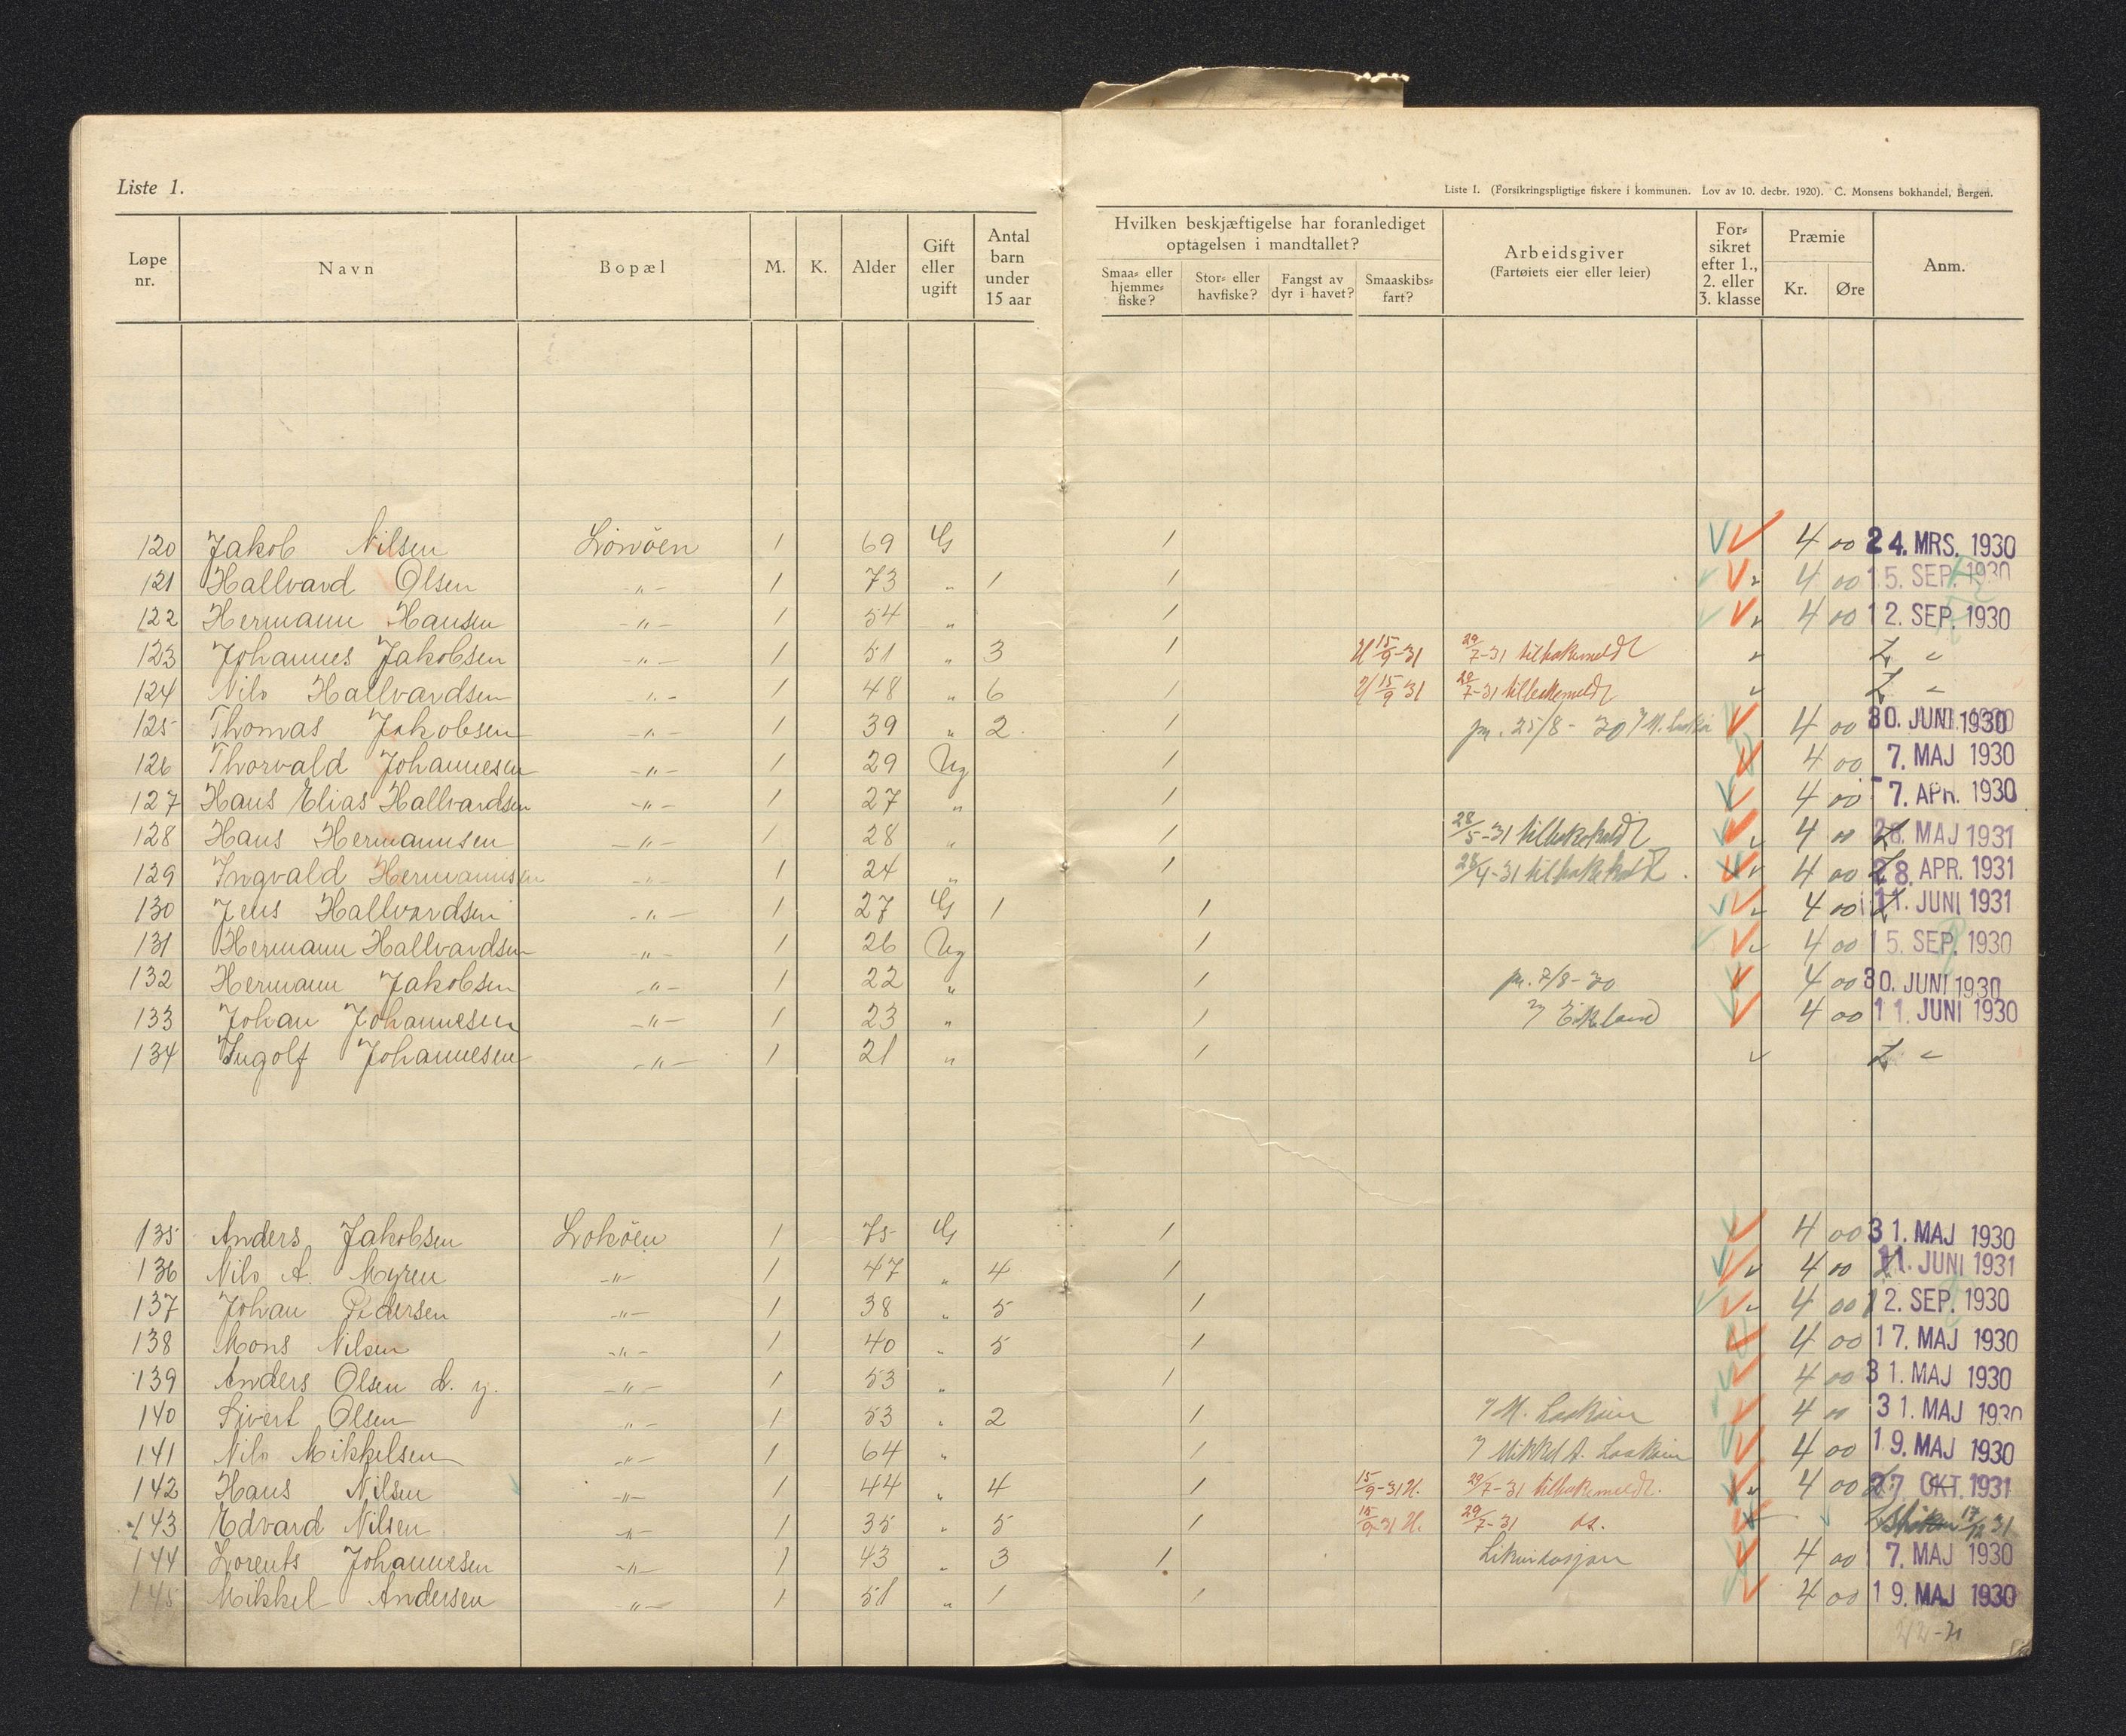 Liste 1.
Liste 1. (Forsikringspligtige fiskere i kommunen. Lov av 10. decbr. 1920). C. Monsens bokhandel, Bergen.
Løpe nr. Navn Bopæl M. K. Alder Gift eller ugift Antal barn under 15 aar Hvilken beskjæftigelse har foranlediget optagelsen i mandtallet? Smaa- eller hjemme-fiske? Stor- eller havfiske? Fangst av dyr i havet? Smaaskibs-fart? Arbeidsgiver (Fartøiets eier eller leier) For-sikret efter 1., 2. eller 3. klasse Præmie Kr. Øre Anm.
120 Jakob Nilsen 1 69 G 1 4 00 24. MRS. 1930
121 Hallvard Olsen -"- 1 73 " 1 1 4 00 15. SEP. 1930
122 Hermann Hansen -"- 1 54 " 1 4 00 12. SEP. 1930
123 Johannes Jakobsen -"- 1 51 " 3 1 15/9-31 29/7-31 tilbakemeldt
124 Nils Hallvardsen -"- 1 48 " 6 1 15/9 31 29/7-31 tilbakemeldt
125 Thomas Jakobsen -"- 1 39 " 2 1 25/8-30 4 00 30. JUNI 1930
126 Thorvald Johannesen -"- 1 29 Ug 1 4 00 7. MAJ 1930
127 Hans Elias Hallvardsen -"- 1 27 " 1 4 00 7. APR. 1930
128 Hans Hermannsen -"- 1 28 " 1 28/5-31 tilbakekaldt 4 00 28. MAJ 1931
129 Ingvald Hermannsen -"- 1 24 " 1 tilbakekaldt 4 00 28. APR. 1931
130 Jens Hallvardsen -"- 1 27 G 1 1 4 00 11. JUNI 1931
131 Hermann Hallvardsen -"- 1 26 Ug 1 4 00 15. SEP. 1930
132 Hermann Jakobsen -"- 1 22 " 1 7/8-30 4 00 30. JUNI 1930
133 Johan Johannesen -"- 1 23 " 1 Eikeland 4 00 11. JUNI 1930
134 Ingolf Johannesen -"- 1 21 " 1
135 Anders Jakobsen Lokøen 1 75 G 1 4 00 31. MAJ 1930
136 Nils A. Myren -"- 1 47 " 4 1 4 00 11. JUNI 1931
137 Johan Pedersen -"- 1 38 " 5 1 4 00 12. SEP. 1930
138 Mons Nilsen -"- 1 40 " 5 1 4 00 17. MAJ 1930
139 Anders Olsen d. y. -"- 1 53 " 1 4 00 31. MAJ 1930
140 Sivert Olsen -"- 1 53 " 2 1 4 00 31. MAJ 1930
141 Nils Mikkelsen -"- 1 64 " 1 Mikkel A. 4 00 19. MAJ 1930
142 Hans Nilsen -"- 1 44 " 4 1 15/9-31 29/7-31 tilbakemeldt. 4 00 27. OKT. 1931
143 Edvard Nilsen -"- 1 35 " 5 1 15/9-31 29/7-31 17/12 31
144 Lorents Johannesen -"- 1 43 " 3 1 4 00 7. MAJ 1930
145 Mikkel Andersen -"- 1 51 " 1 1 4 00 19. MAJ 1930